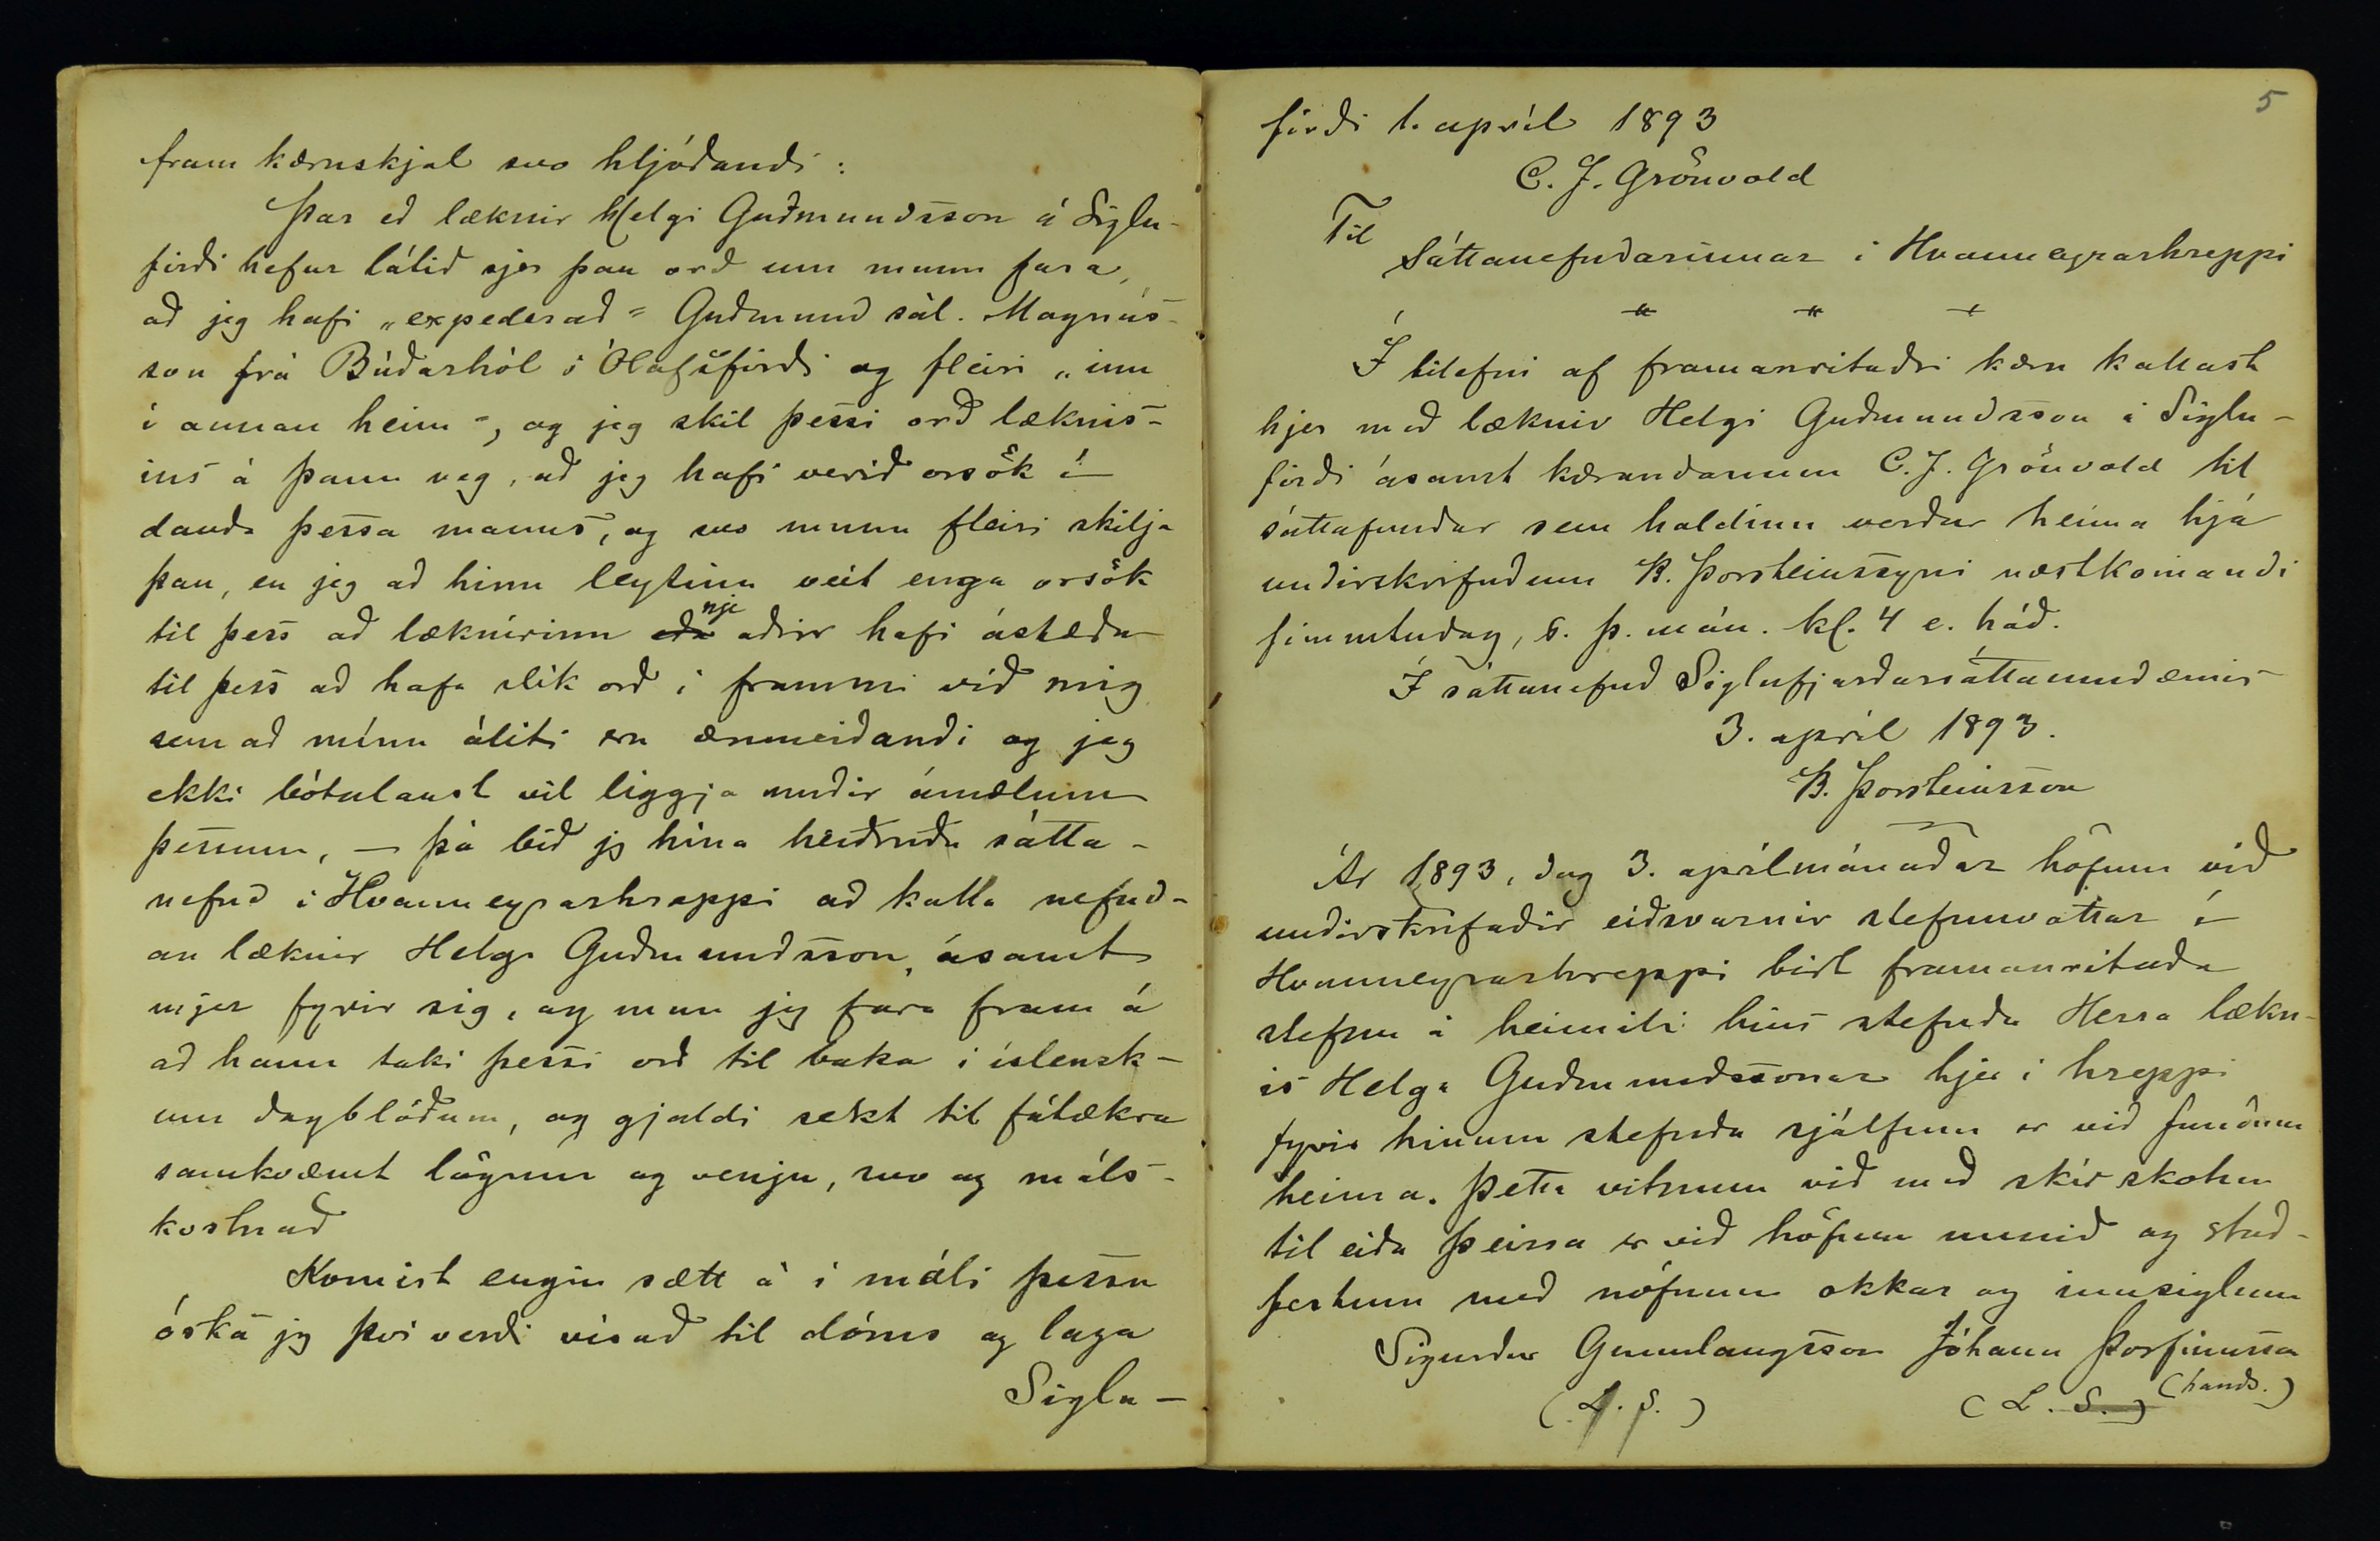 fram kæruskjal svo hljóðandi:
Þar eð læknir Helgi Guðmundsson á Siglu-
firði hefur látið sjer þau orð um munn fara,
að jeg hafi „expederað" Guðmund sál. Magnús-
son frá Búðarhól í Ólafsfirði og fleiri „inn
í annan heim", og jeg skil þessi orð læknis-
ins á þann veg, að jeg hafi verið orsök í
dauða þessa manns, og svo munu fleiri skilja
þau, en jeg að hinu leytinu veit enga orsök
til þess að læknirinn eða nje aðrir hafi ástæðu
til þess að hafa slík orð í frammi við mig
sem að mínu áliti eru ærumeiðandi og jeg
ekki bótalaust vil liggja undir ámælum
þessum, — þá bið jg hina heiðruðu sátta-
nefnd í Hvanneyrarhreppi að kalla nefnd-
an læknir Helga Guðmundsson, ásamt
mjer fyrir sig, og mun jeg fara fram á
að hann taki þessi orð til baka í íslensk-
um dagblöðum, og gjaldi sekt til fátækra
samkvæmt lögum og venju, svo og máls-
kostnað
Komist engin sætt á í máli þessu
óska jg því verði vísað til dóms og laga
Siglu-
5
firði 1. apríl 1893
C. J. Grönvold
Til
Sáttanefndarinnar í Hvanneyrarhreppi
Í tilefni af framanritaðri kæru kallast
hjer með læknir Helgi Guðmundsson á Siglu-
firði ásamt kærandanum C. J. Grönvold til
sáttafundar sem haldinn verður heima hjá
undirskrifuðum B. Þorsteinssyni næstkomandi
fimmtudag, 6. þ. mán. kl. 4 e. hád.
Í sáttanefnd Siglufjarðarsáttaumdæmis
3. apríl 1893.
B. Þorsteinsson
Ár 1893, dag 3. aprílmánaðar höfum við
undirskrifaðir eiðsvarnir stefnuvottar í
Hvanneyrarhreppi birt framanritaða
stefnu á heimili hins stefnda Herra lækn-
is Helga Guðmundssonar hjer í hreppi
fyrir hinum stefnda sjálfum er við fundum
heima. Þetta vitnum við með skírskotun
til eiða þeirra er við höfum unnið og stað-
festum með nöfnum okkar og innsiglum
Sigurður Gunnlaugsson Jóhann Þorfinnsson
(L. S.) (L. S.) (hands.)